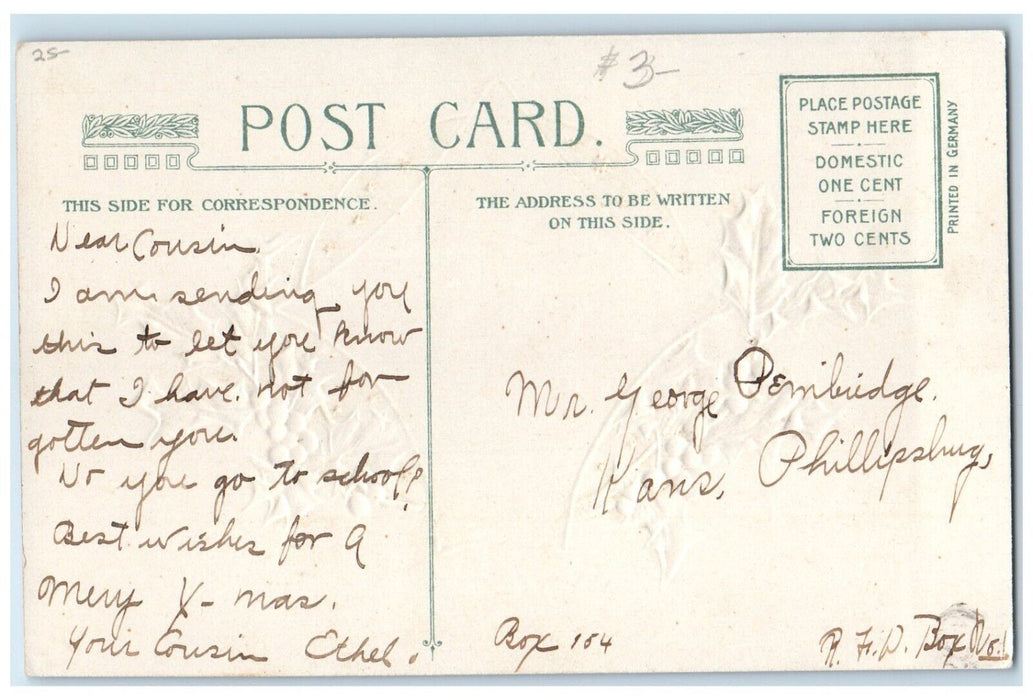 25
$3-
POST CARD.
THIS SIDE FOR CORRESPONDENCE.
THE ADDRESS TO BE WRITTEN
ON THIS SIDE.
PLACE POSTAGE
STAMP HERE
DOMESTIC
ONE CENT
FOREIGN
TWO CENTS
PRINTED IN GERMANY
Dear Cousin
I am sending you
this to let you know
that I have not for
gotten you.
Do you go to school?
Best wishes for a
Mery X-mas.
Your Cousin Ethel.
Mr. George Pembridge.
Kans, Phillipsburg,
Box 164
R. F. D. Box No. 1